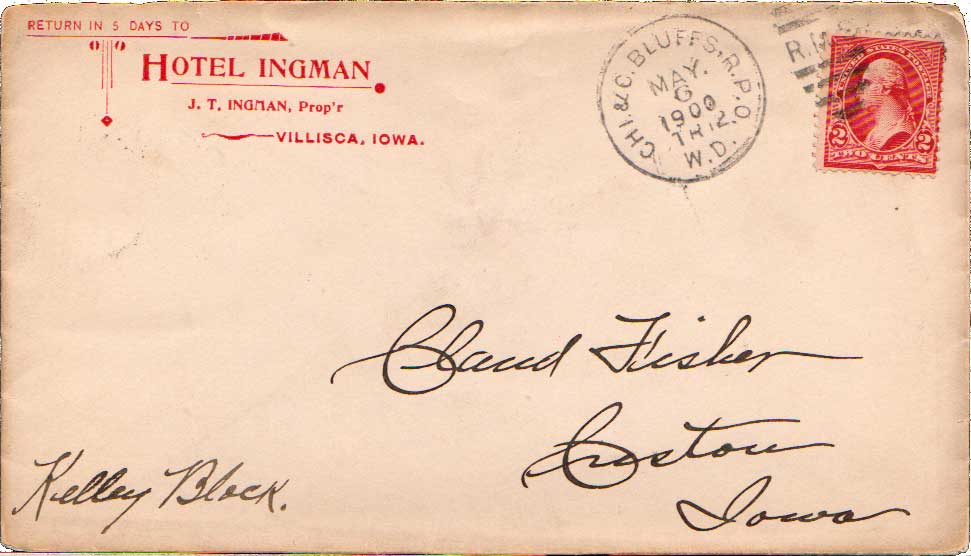 RETURN IN 5 DAYS TO
HOTEL INGMAN
J. T. INGMAN, Prop'r
VILLISCA, IOWA.
CHI. & C. BLUFFS. R.P.O.
MAY.
6
1900
TR 12.
W.D.
R.M
UNITED STATES POSTAGE
2 2
TWO CENTS
Claud Fisher
Creston
Iowa
Kelley Block.